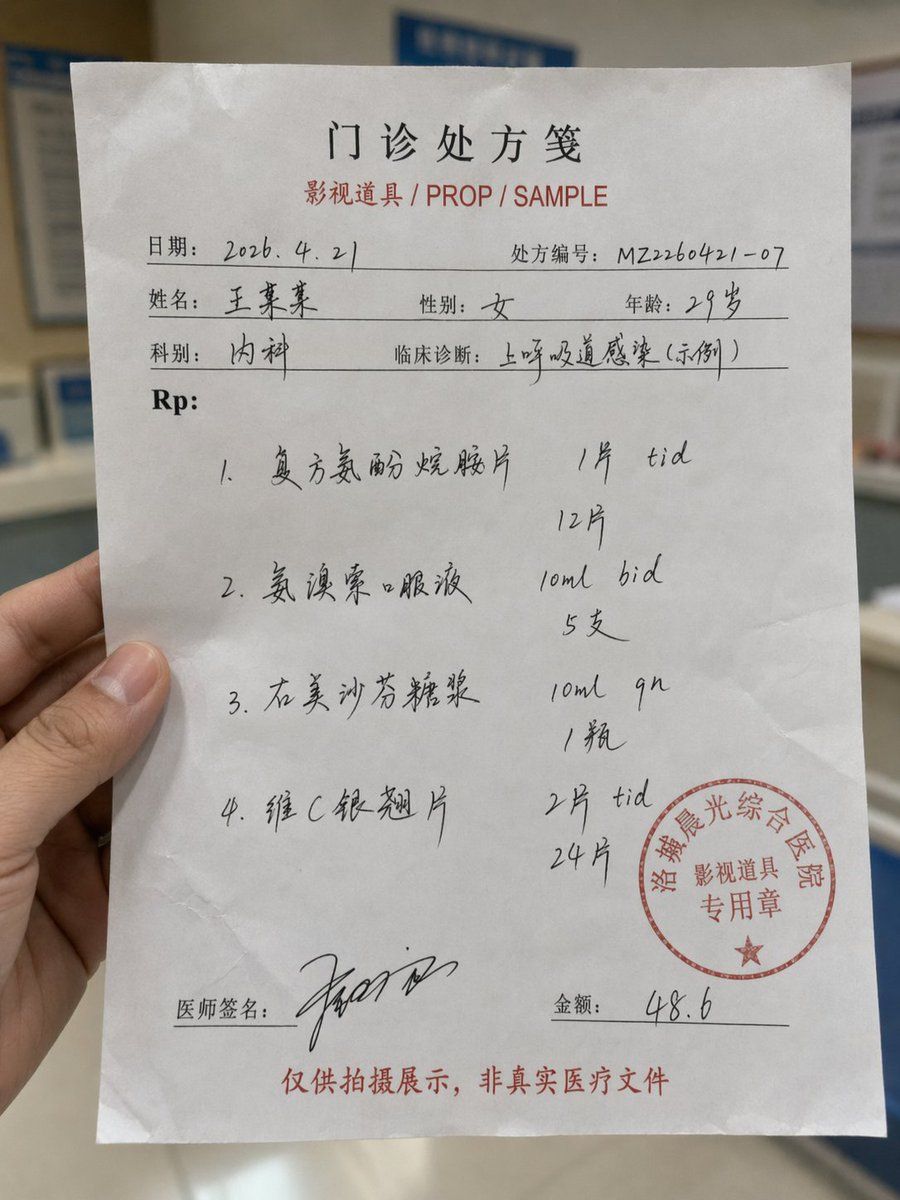 门诊处方笺
影视道具 / PROP / SAMPLE
日期： 2026.4.21 处方编号： MZ2260421-07
姓名： 王某某 性别： 女 年龄： 29岁
科别： 内科 临床诊断： 上呼吸道感染（示例）
Rp:
1. 复方氨酚烷胺片 1片 tid
12片
2. 氨溴索口服液 10ml bid
5支
3. 右美沙芬糖浆 10ml qn
1瓶
4. 维C银翘片 2片 tid
24片
洛城晨光综合医院
影视道具
专用章
医师签名：
金额： 48.6
仅供拍摄展示，非真实医疗文件